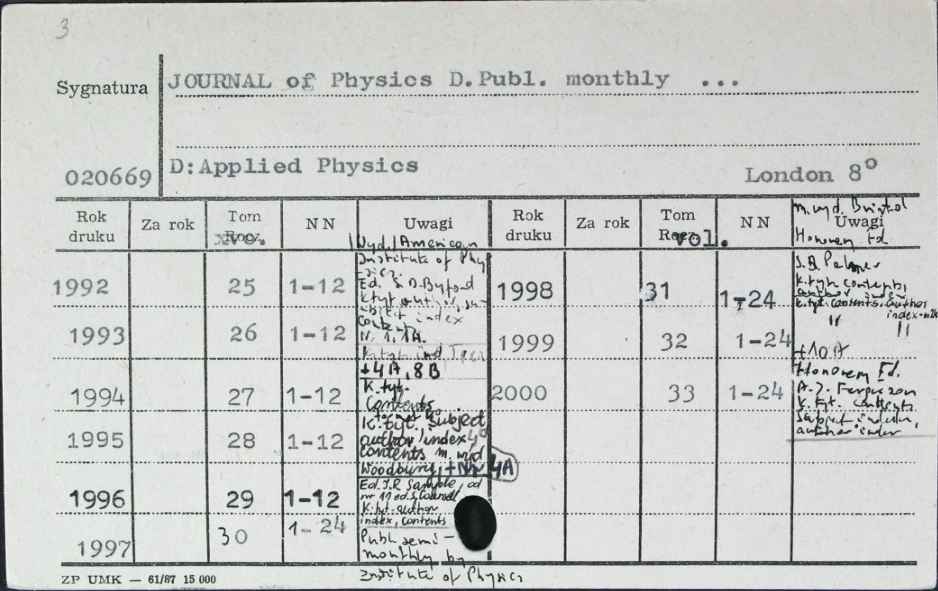 3
Sygnatura JOURNAL of Physics D.Publ. monthly ...
020669 D:Applied Physics London 8°
Rok druku Za rok Tom Rocz. vol. NN Uwagi Rok druku Za rok Tom Rocz. vol. NN Uwagi
m. wyd. Bristol
Honorary Ed
S.B. Palmer
k.tyt. contents,
author index
k.tyt. contents, author
index
" "
+10A
Honorary Ed.
A.J. Ferguson
k.tyt. contents
Subject index,
author index
Wyd. American
Institute of Phy
sics.
Ed. S.D. Byford
Contents
N. 1, 1A.
+4A, 8B
K.tyt.
Contents
K.tyt. Subject
author index
contents m. wyd
Woodbury, +Nr 4A
Ed. J.R. Sample, od
nr 11 ed. S.
K.tyt. author
index, contents
Publ. semi-
monthly by
Institute of Physics
1992 25 1-12 1998 31 1-24
1993 26 1-12 1999 32 1-24
1994 27 1-12 2000 33 1-24
1995 28 1-12
1996 29 1-12
1997 30 1-24
ZP UMK — 61/87 15 000